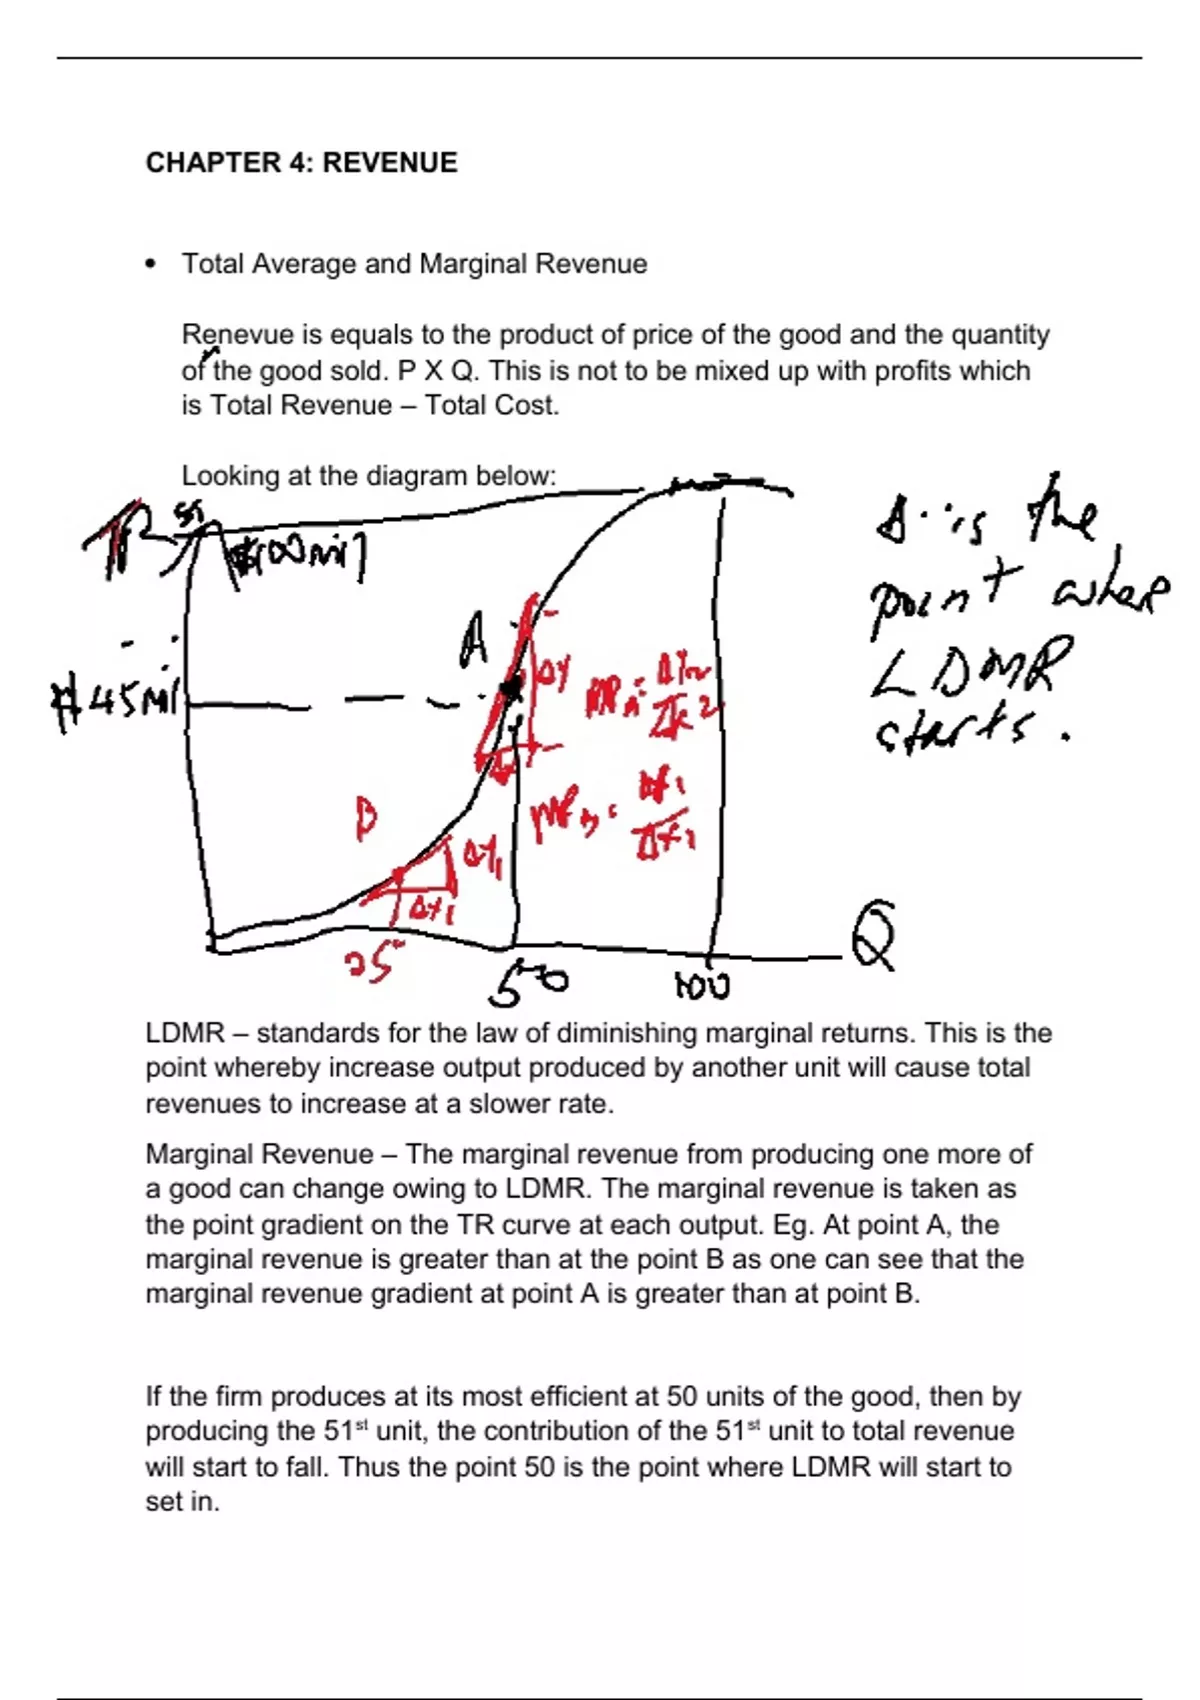 CHAPTER 4: REVENUE
• Total Average and Marginal Revenue
Renevue is equals to the product of price of the good and the quantity
of the good sold. P X Q. This is not to be mixed up with profits which
is Total Revenue – Total Cost.
Looking at the diagram below:
TR $
$100mil
A
A is the
point where
LDMR
starts.
$45mil
ΔY
B
ΔY1
ΔX1
25
50
100
Q
LDMR – standards for the law of diminishing marginal returns. This is the
point whereby increase output produced by another unit will cause total
revenues to increase at a slower rate.
Marginal Revenue – The marginal revenue from producing one more of
a good can change owing to LDMR. The marginal revenue is taken as
the point gradient on the TR curve at each output. Eg. At point A, the
marginal revenue is greater than at the point B as one can see that the
marginal revenue gradient at point A is greater than at point B.
If the firm produces at its most efficient at 50 units of the good, then by
producing the 51st unit, the contribution of the 51st unit to total revenue
will start to fall. Thus the point 50 is the point where LDMR will start to
set in.